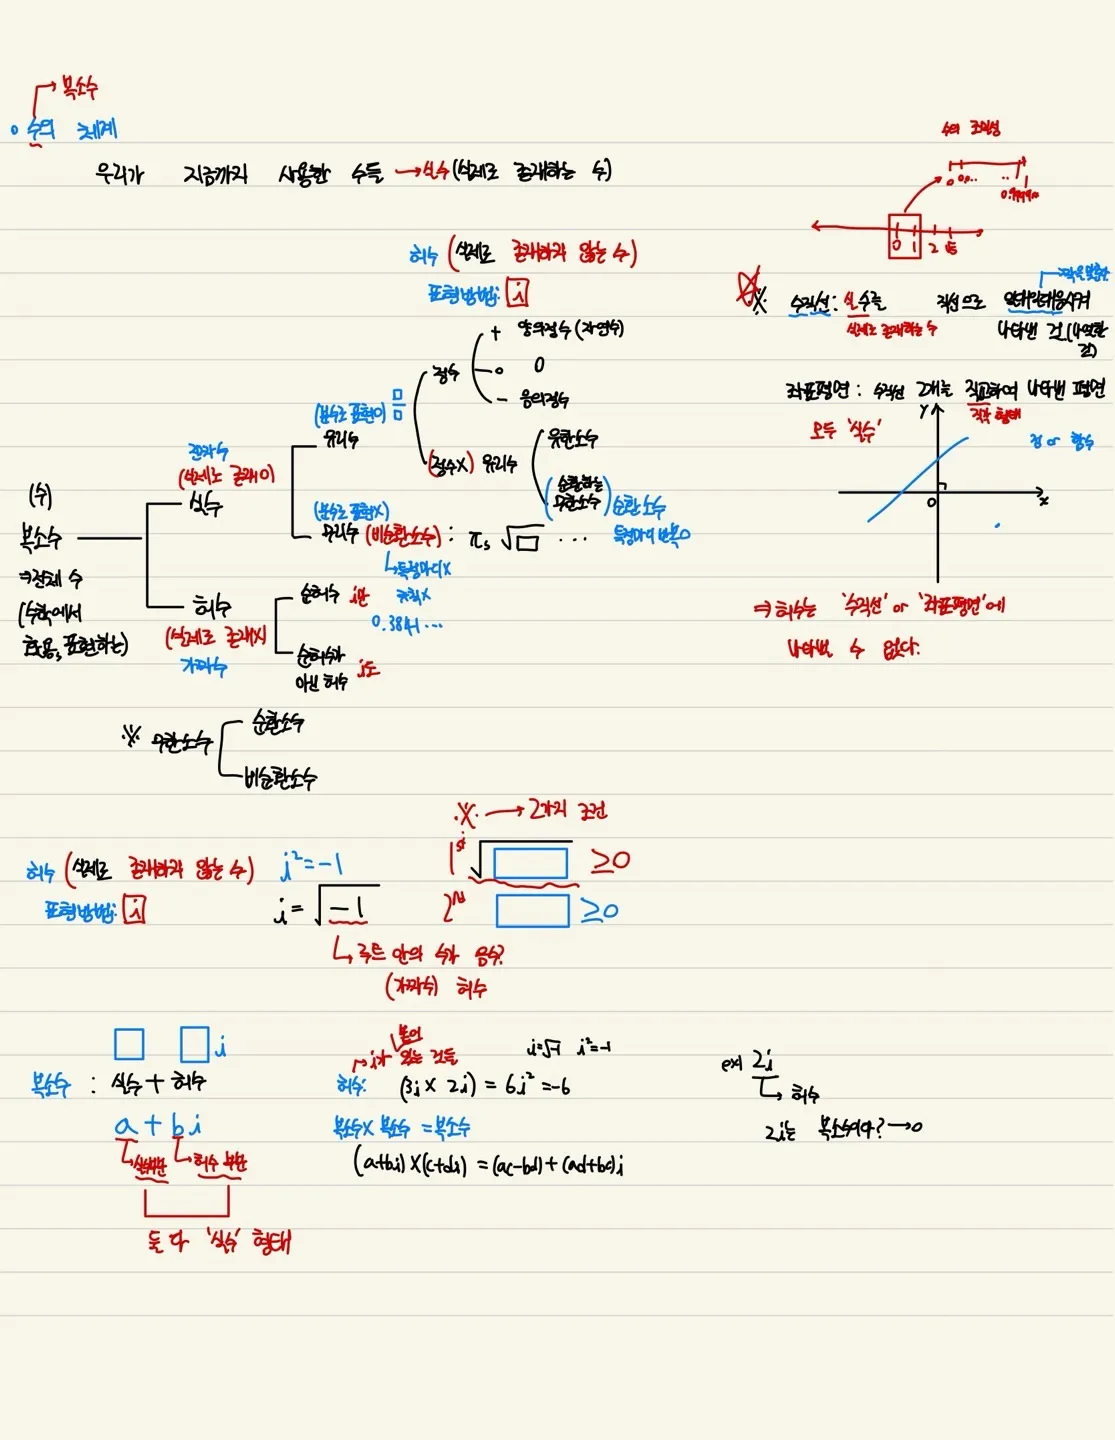 복소수
수의 체계
우리가 지금까지 사용한 수들 → 실수 (실제로 존재하는 수)
수의 조밀성
0 0.0.. .. 0.9999..
0 1 2
허수 (실제로 존재하지 않는 수)
표현방법: i
※ 수직선: 실수를 직선으로 일대일대응시켜
실제로 존재하는 수
나타낸 것 (나열한 것)
좌표평면 : 수직선 2개를 직교하여 나타낸 평면
직각 형태
모두 '실수'
점 or 함수
y
0
x
⇒ 허수는 '수직선' or '좌표평면'에
나타낼 수 없다.
(수)
복소수
⇒ 전체 수
(수학에서
허용, 표현하는)
진짜수
(실제로 존재O)
실수
(분수로 표현O)
유리수
정수
+ 양의정수 (자연수)
0 0
- 음의정수
(정수X) 유리수
유한소수
(순환하는 무한소수) 순환소수
특정마디 반복O
(분수로 표현X)
무리수 (비순환소수) : π, √□ ...
↳ 특정마디X
규칙X
0.3841...
허수
(실제로 존재X)
가짜수
순허수 i만
순허수가
아닌 허수 i도
※ 무한소수
순환소수
비순환소수
허수 (실제로 존재하지 않는 수)
표현방법: i
i² = -1
i = √-1
↳ 루트 안의 수가 음수?
(가짜수) 허수
※ → 2가지 조건
1st √□ ≥0
2nd □ ≥0
□ □i
복소수 : 실수 + 허수
a + bi
실수부분 허수 부분
둘 다 '실수' 형태
붙어
→ i가 있는 것들
i=√-1 i²=-1
허수: (3i × 2i) = 6i² = -6
복소수 × 복소수 = 복소수
(a+bi) × (c+di) = (ac-bd) + (ad+bc)i
ex) 2i
↳ 허수
2i는 복소수이다? → O